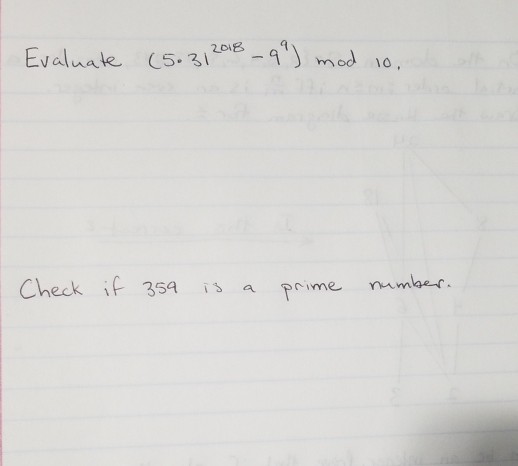 Evaluate (5·31^2018 - 9^9) mod 10.
Check if 359 is a prime number.